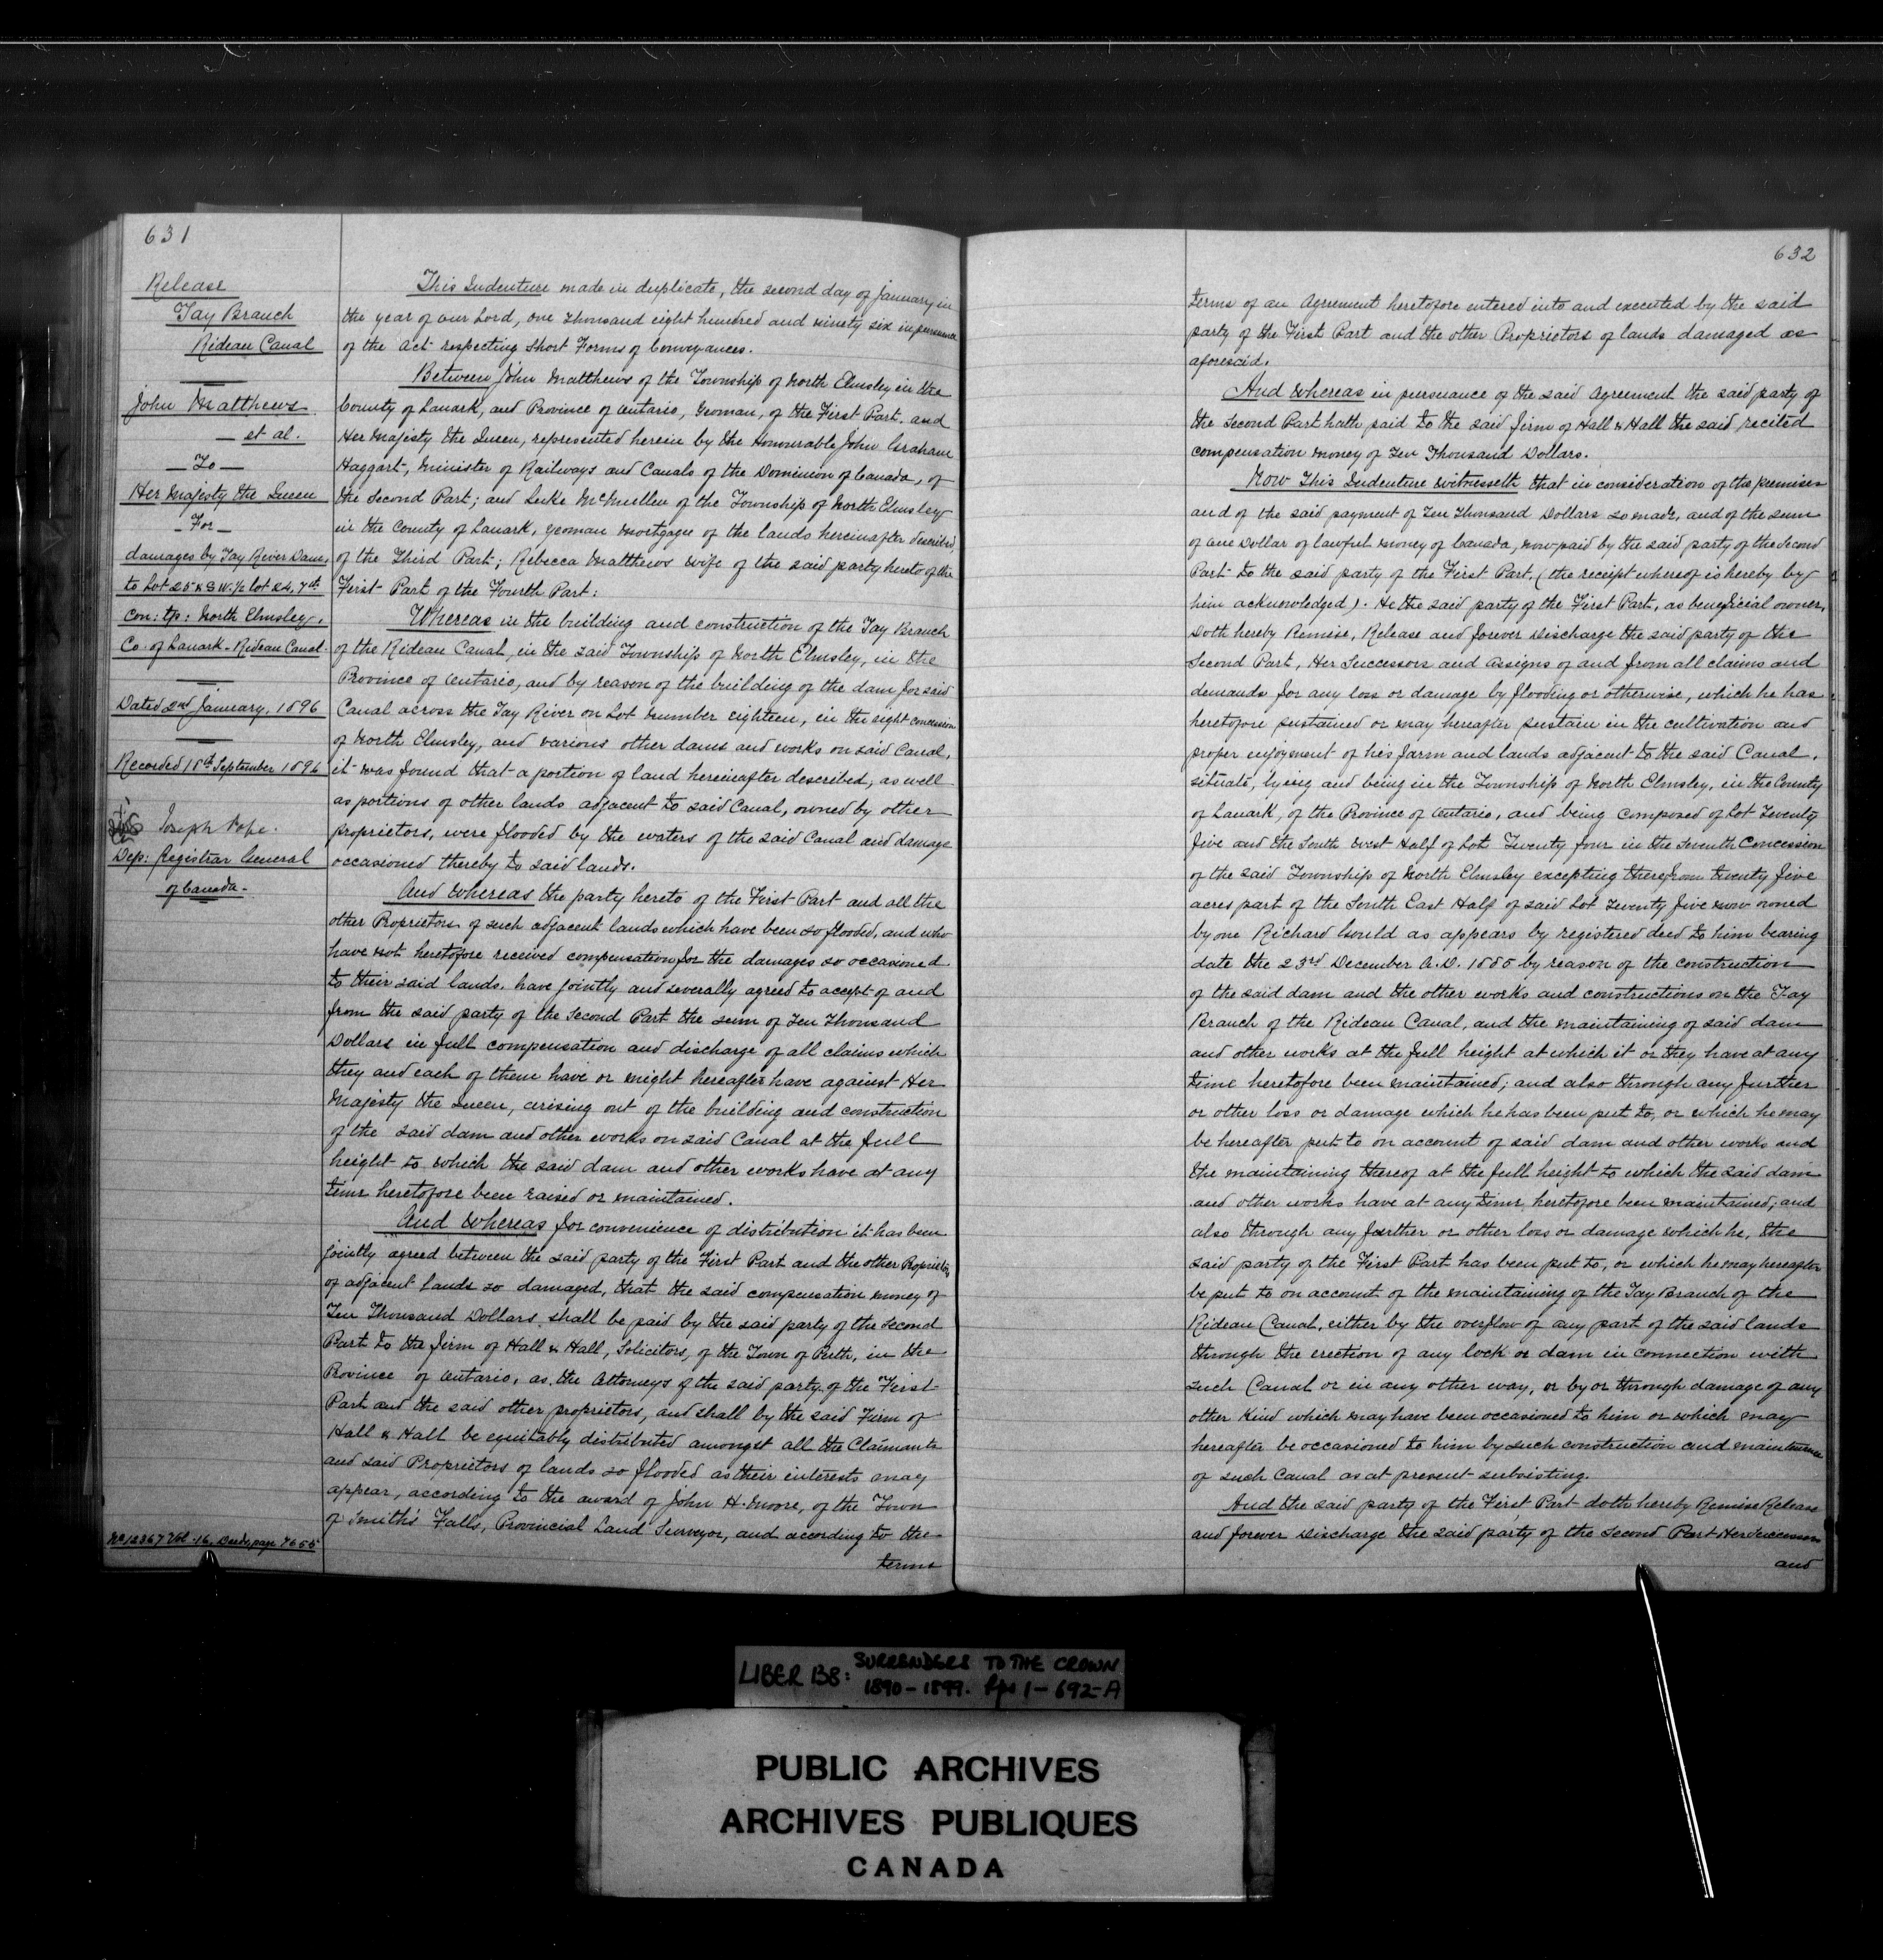 631
Release
Tay Branch
Rideau Canal
John Matthews
et al.
To
Her Majesty the Queen
For
damages by Tay River Dam,
to Lot 25 & S.W. 1/2 lot 24, 7th
Con: tp: North Elmsley,
Co. of Lanark - Rideau Canal.
Dated 2nd January, 1896
Recorded 18th September 1896
Joseph Pope.
Dep: Registrar General
of Canada.
No 12367 Vol. 16, Deeds, page 7655
This Indenture made in duplicate, the second day of January in
the year of our Lord, one thousand eight hundred and ninety six in pursuance
of the Act respecting Short Forms of Conveyances.
Between John Matthews of the Township of North Elmsley in the
County of Lanark, and Province of Ontario, Yeoman, of the First Part, and
Her Majesty the Queen, represented herein by the Honourable John Graham
Haggart, Minister of Railways and Canals of the Dominion of Canada, of
the Second Part; and Luke McMullen of the Township of North Elmsley
in the County of Lanark, yeoman Mortgagee of the lands hereinafter described,
of the Third Part; Rebecca Matthews wife of the said party hereto of the
First Part of the Fourth Part:
Whereas in the building and construction of the Tay Branch
of the Rideau Canal, in the said Township of North Elmsley, in the
Province of Ontario, and by reason of the building of the dam for said
Canal across the Tay River on Lot Number eighteen, in the eight concession
of North Elmsley, and various other dams and works on said Canal,
it was found that a portion of land hereinafter described, as well
as portions of other lands adjacent to said Canal, owned by other
proprietors, were flooded by the waters of the said Canal and damage
occasioned thereby to said lands.
And Whereas the party hereto of the First Part and all the
other Proprietors of such adjacent lands which have been so flooded, and who
have not heretofore received compensation for the damages so occasioned
to their said lands, have jointly and severally agreed to accept of and
from the said party of the Second Part the sum of Ten Thousand
Dollars in full compensation and discharge of all claims which
they and each of them have or might hereafter have against Her
Majesty the Queen, arising out of the building and construction
of the said dam and other works on said Canal at the full
height to which the said dam and other works have at any
time heretofore been raised or maintained.
And Whereas for convenience of distribution it has been
jointly agreed between the said party of the First Part and the other Proprietors
of adjacent lands so damaged, that the said compensation money of
Ten Thousand Dollars, shall be paid by the said party of the Second
Part to the firm of Hall & Hall, Solicitors, of the Town of Perth, in the
Province of Ontario, as the Attorneys of the said party of the First
Part and the said other proprietors, and shall by the said Firm of
Hall & Hall be equitably distributed amongst all the Claimants
and said Proprietors of lands so flooded as their interests may
appear, according to the award of John H. Moore, of the Town
of Smith's Falls, Provincial Land Surveyor, and acording to the
terms
632
terms of an Agreement heretofore entered into and executed by the said
party of the First Part and the other Proprietors of lands damaged as
aforesaid.
And Whereas in pursuance of the said Agreement the said party of
the Second Part hath paid to the said firm of Hall & Hall the said recited
compensation money of Ten Thousand Dollars.
Now This Indenture Witnesseth that in consideration of the premises
and of the said payment of Ten Thousand Dollars so made, and of the sum
of One Dollar of lawful money of Canada, now paid by the said party of the Second
Part to the said party of the First Part, (the receipt whereof is hereby by
him acknowledged). He the said party of the First Part, as beneficial owner,
Doth hereby Remise, Release and forever Discharge the said party of the
Second Part, Her Successors and Assigns of and from all claims and
demands for any loss or damage by flooding or otherwise, which he has
heretofore sustained or may hereafter sustain in the cultivation and
proper enjoyment of his farm and lands adjacent to the said Canal,
situate, lying and being in the Township of North Elmsley, in the County
of Lanark, of the Province of Ontario, and being composed of Lot Twenty
five and the South West Half of Lot Twenty four in the Seventh Concession
of the said Township of North Elmsley excepting therefrom twenty five
acres part of the South East Half of said Lot Twenty five now owned
by one Richard Gould as appears by registered deed to him bearing
date the 23rd December A.D. 1885 by reason of the construction
of the said dam and the other works and constructions on the Tay
Branch of the Rideau Canal, and the maintaining of said dam
and other works at the full height at which it or they have at any
time heretofore been maintained; and also through any further
or other loss or damage which he has been put to, or which he may
be hereafter put to on account of said dam and other works and
the maintaining thereof at the full height to which the said dam
and other works have at any time heretofore been maintained; and
also through any further or other loss or damage which he, the
said party of the First Part has been put to, or which he may hereafter
be put to on account of the maintaining of the Tay Branch of the
Rideau Canal, either by the overflow of any part of the said lands
through the erection of any lock or dam in connection with
such Canal or in any other way, or by or through damage of any
other kind which may have been occasioned to him or which may
hereafter be occasioned to him by such construction and maintenance
of such Canal as at present subsisting.
And the said party of the First Part doth hereby Remise Release
and forever Discharge the said party of the Second Part Her Successors
and
LIBER 138: SURRENDERS TO THE CROWN
1890-1899. Pgs 1-692-A
PUBLIC ARCHIVES
ARCHIVES PUBLIQUES
CANADA